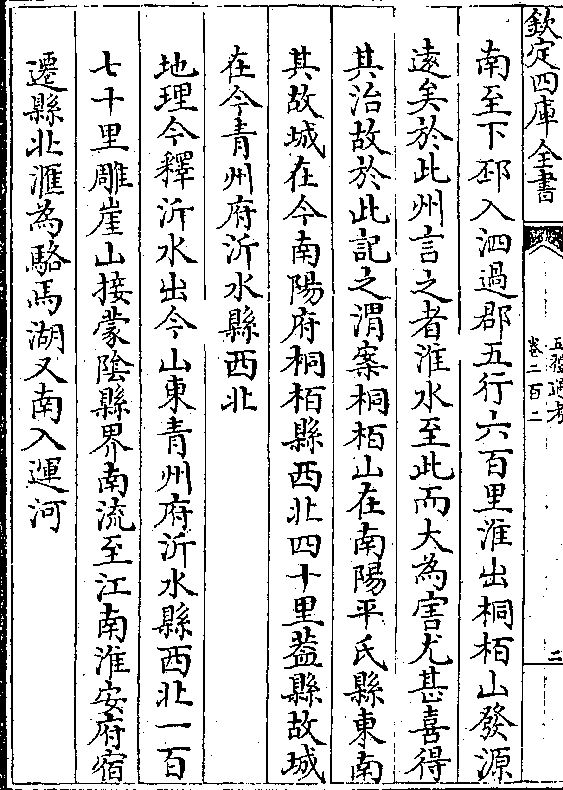 欽定四庫全書
五禮通考
卷二百二
二
南至下邳入泗過郡五行六百里淮出桐栢山發源
遠矣於此州言之者淮水至此而大為害尤甚喜得
其治故於此記之渭案桐栢山在南陽平氏縣東南
其故城在今南陽府桐栢縣西北四十里葢縣故城
在今青州府沂水縣西北
地理今釋沂水出今山東青州府沂水縣西北一百
七十里雕崖山接蒙陰縣界南流至江南淮安府宿
遷縣北滙為駱馬湖又南入運河